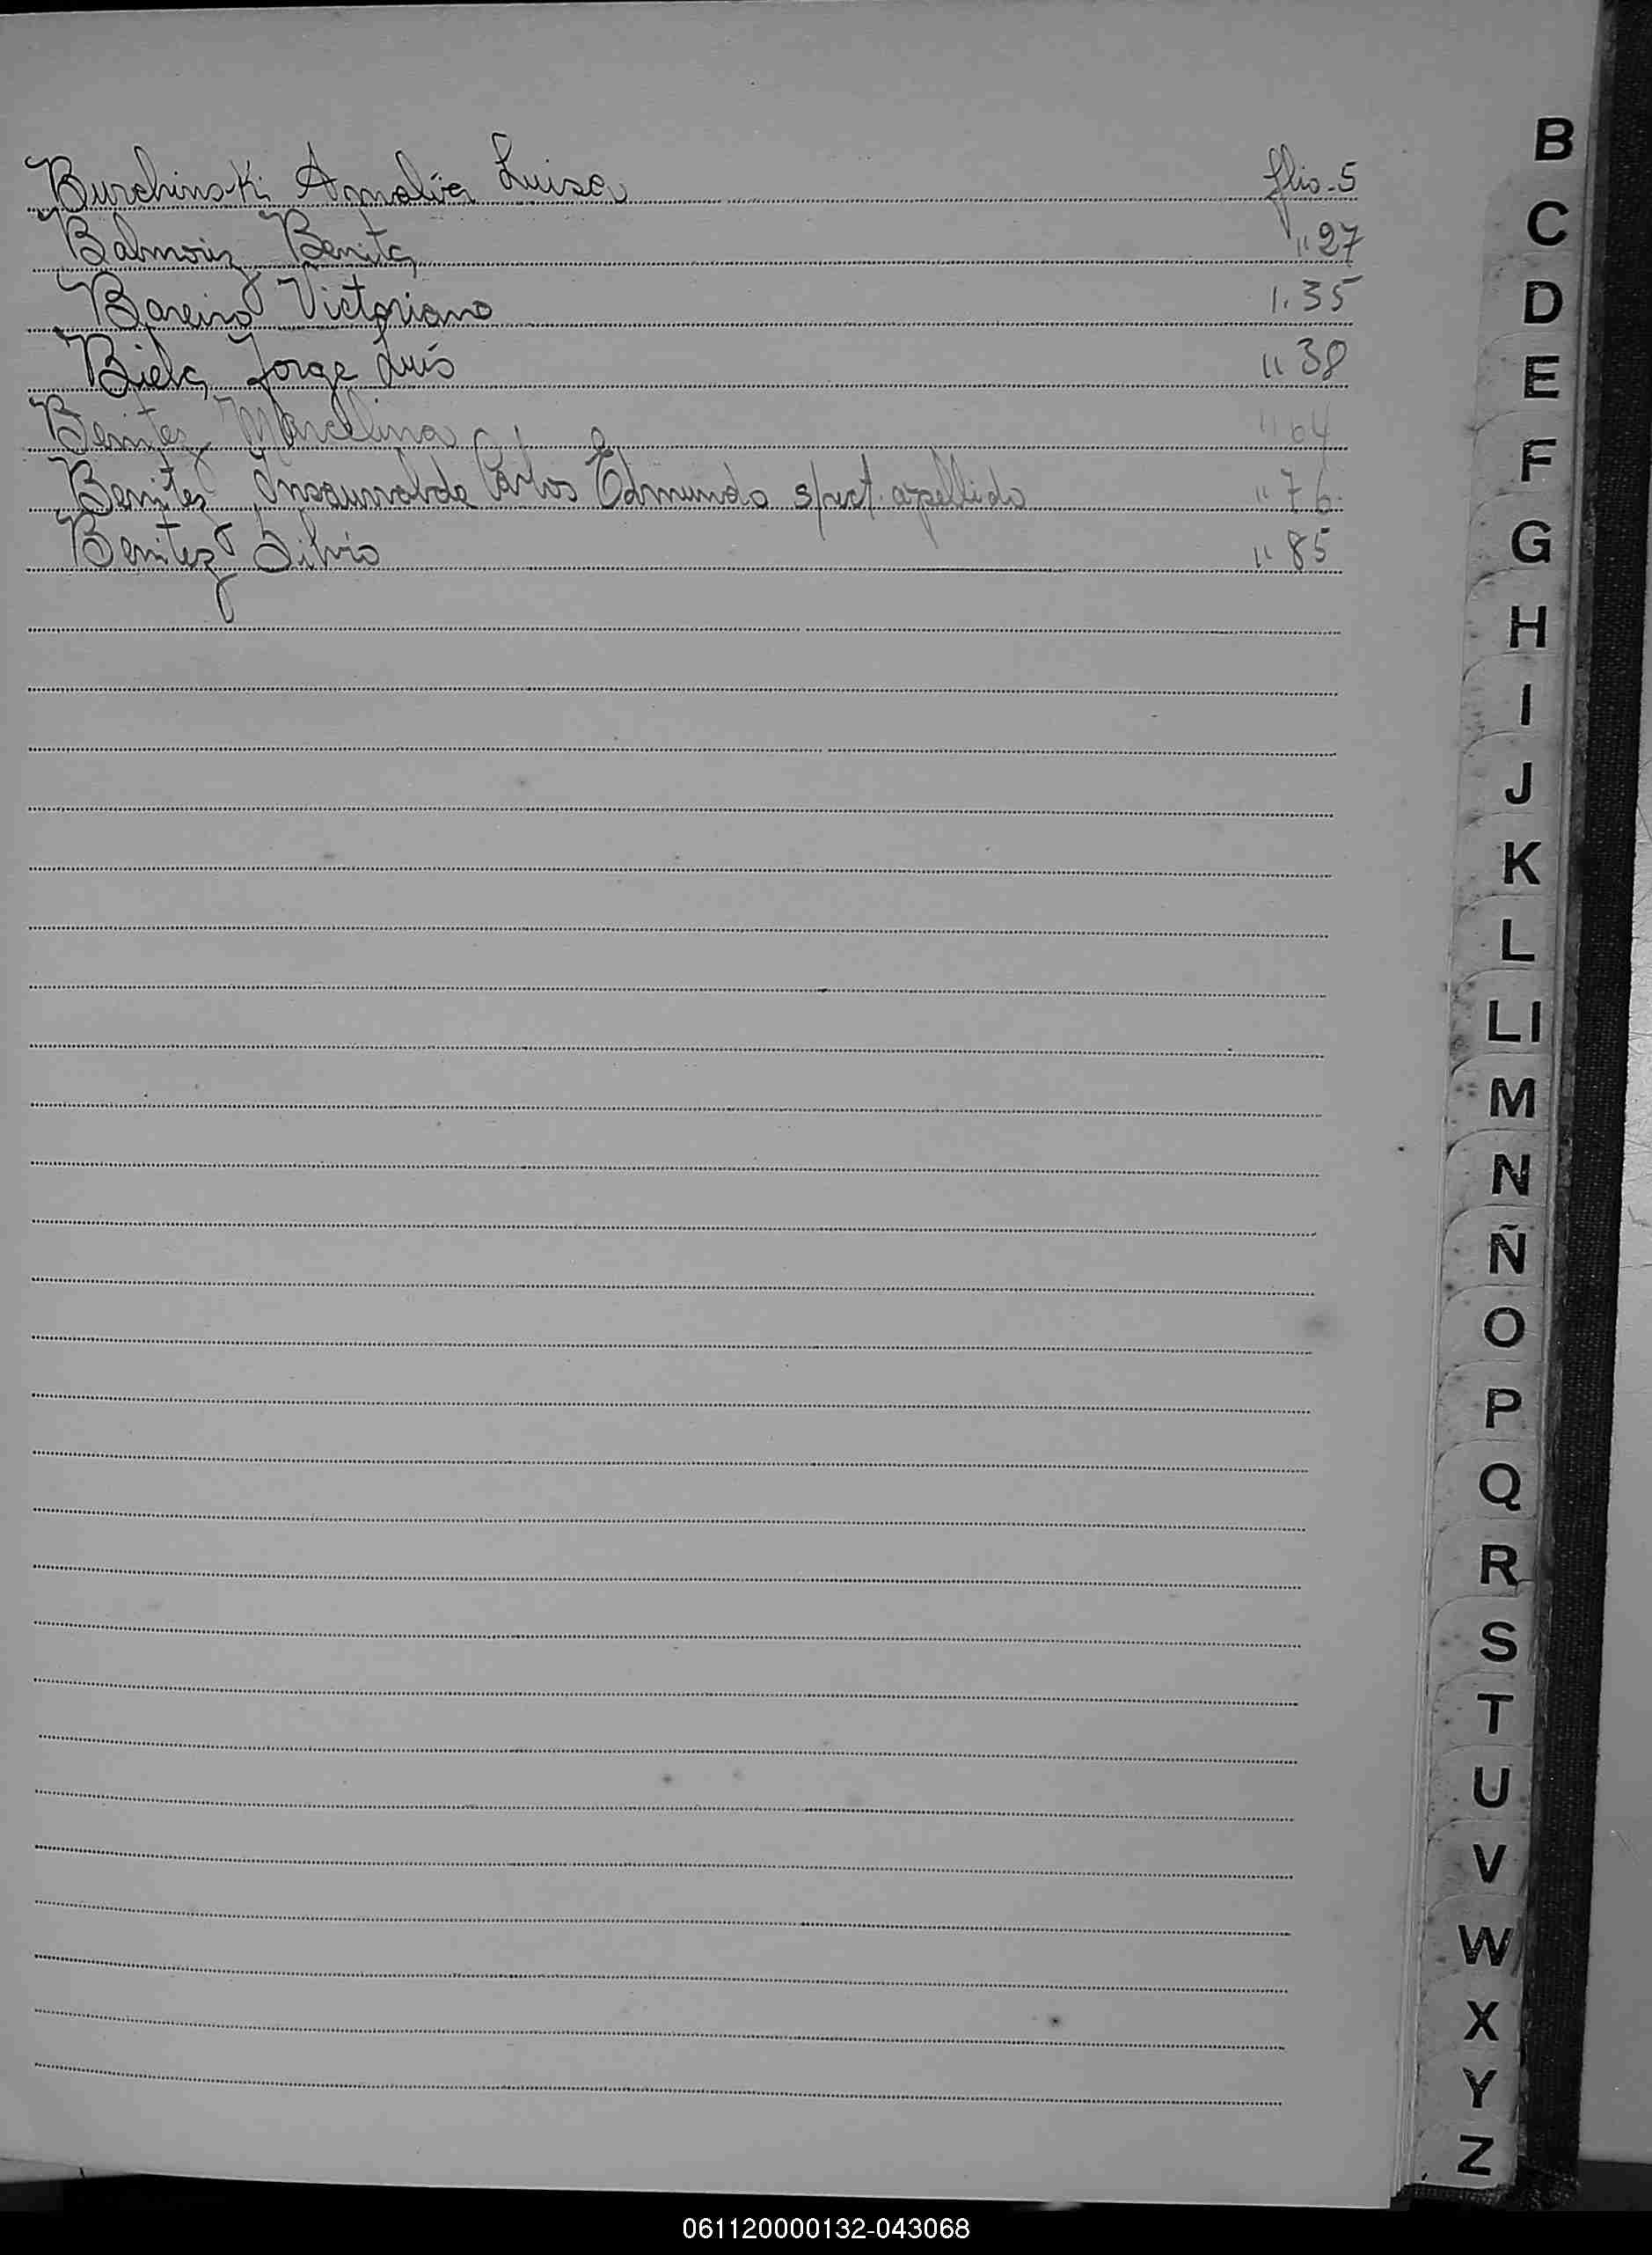 Burchinski Amalia Luisa flio. 5
Balmoriz Benita " 27
Bareiro Victoriano 1. 35
Biela Jorge Luis " 38
Benitez Marcelina " 64
Benitez Insaurralde Carlos Edmundo s/rect. apellido " 76.
Benitez Silvio " 85
B
C
D
E
F
G
H
I
J
K
L
Ll
M
N
Ñ
O
P
Q
R
S
T
U
V
W
X
Y
Z
061120000132-043068